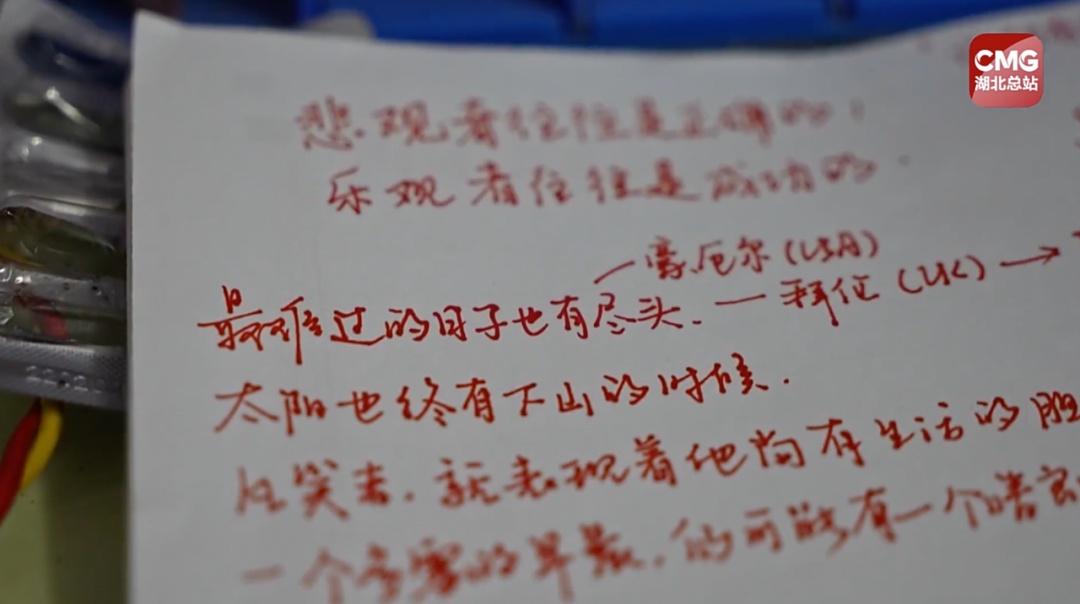 CMG
湖北总站
悲观者往往是正确的！
乐观者往往是成功的.
豪厄尔(USA)
最难过的日子也有尽头. — 拜伦 (UK) →
太阳也终有下山的时候.
笑着，就表现着他尚有生活的胆
一个多雾的早晨，仍可能有一个晴